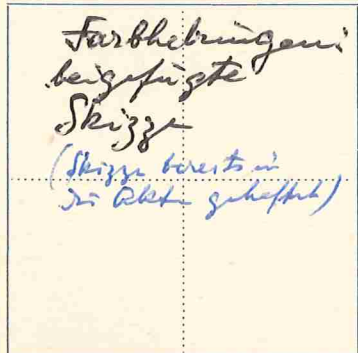 Farbhebungen:
beigefügte
Skizze
(Skizze bereits in
die Akte geheftet)